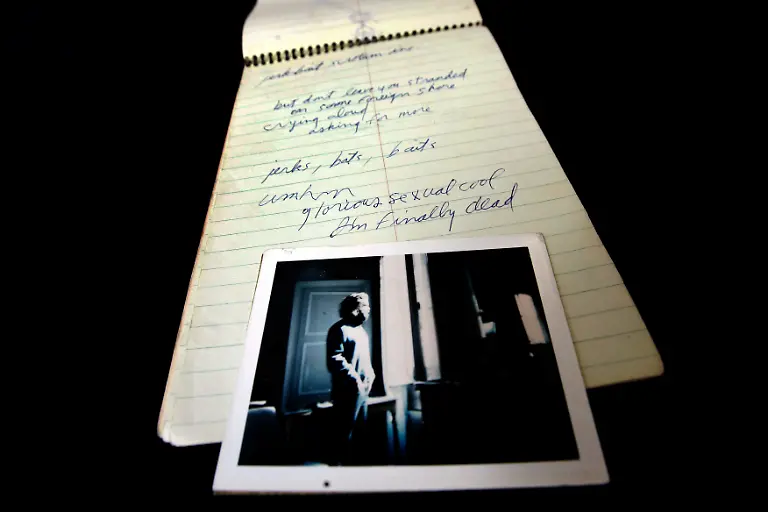 jerk-bait scrotum inc.
but dont leave you stranded
on some foreign shore
crying aloud
asking for more
jerks, bats, baits
umhm
glorious sexual cool
Im finally dead